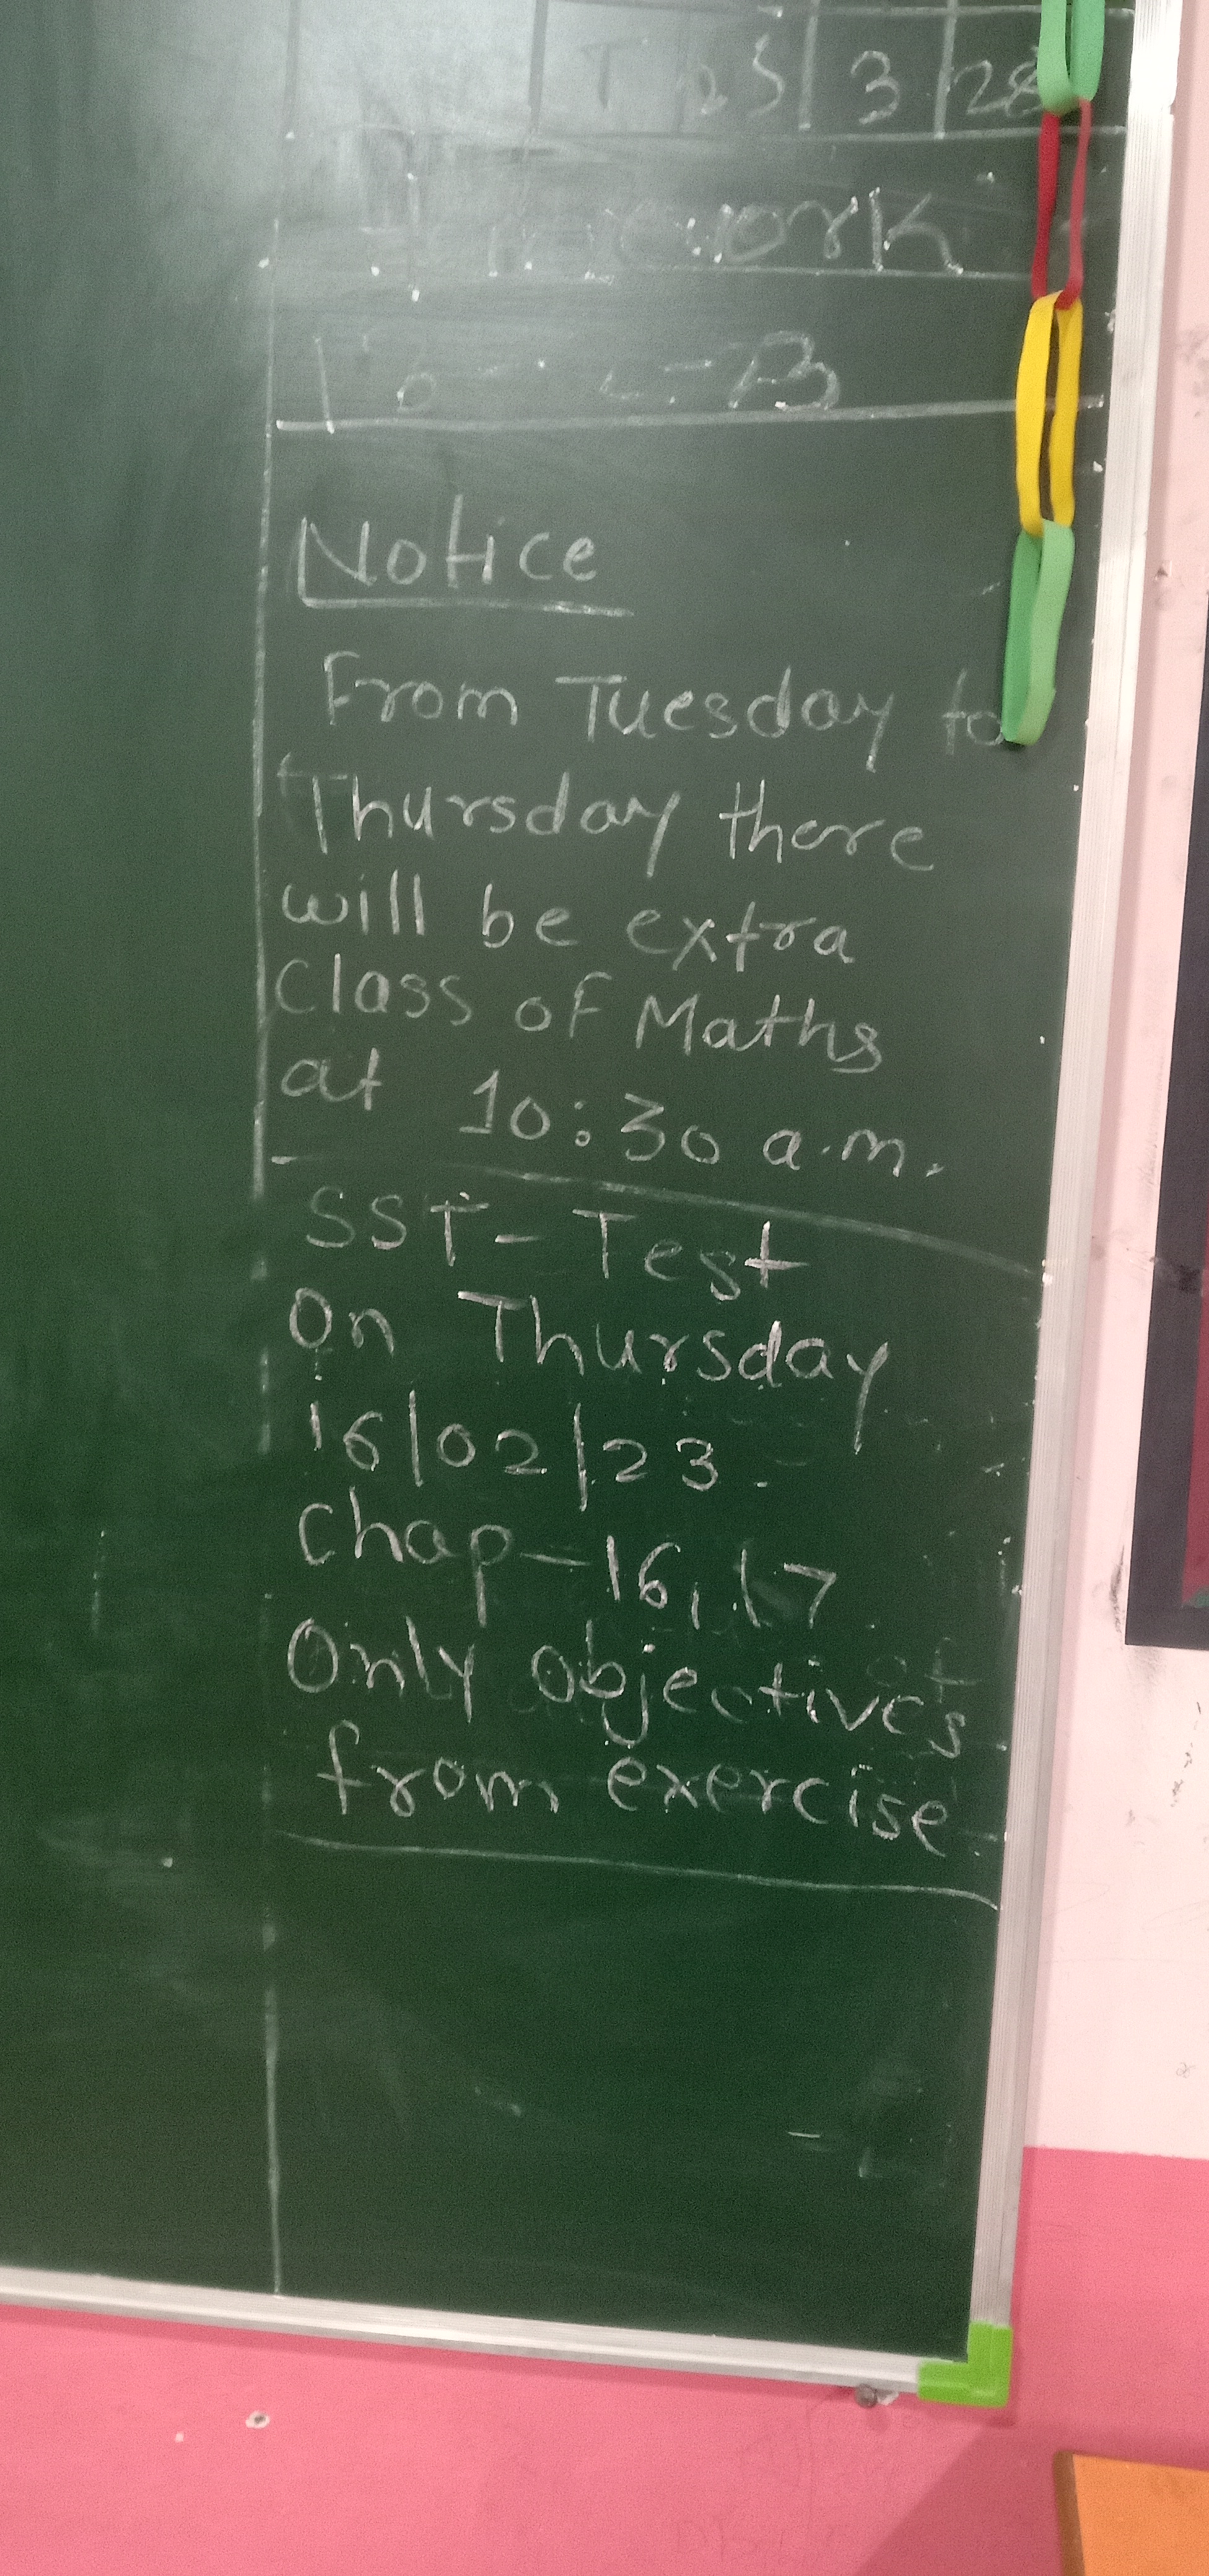 T 25 3 28
Homework
Notice
From Tuesday to
Thursday there
will be extra
Class of Maths
at 10:30 a.m.
SST - Test
On Thursday
16/02/23.
Chap - 16, 17
Only objectives
from exercise